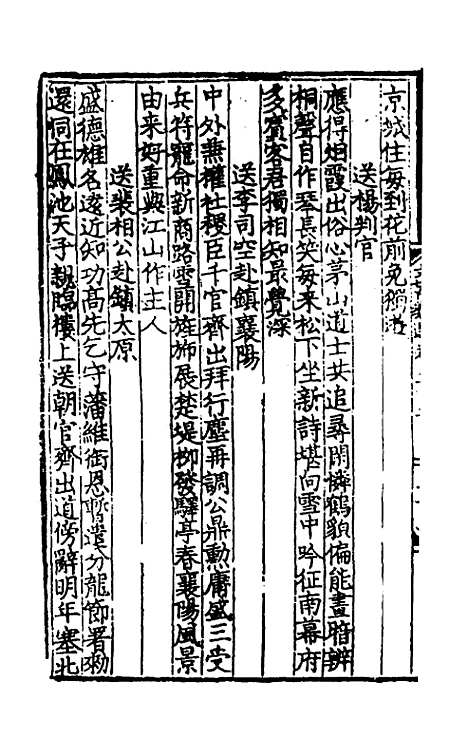 京城住每到花前免獨遊
送楊判官
應得烟霞出俗心茅山道士共追尋閑憐鶴貌偏能畫暗辨
桐聲自作琴長笑每來松下坐新詩堪向雪中吟征南幕府
多賓客君獨相知最覺深
送李司空赴鎮襄陽
中外兼權社稷臣千官齊出拜行塵再調公鼎勳庸盛三受
兵符寵命新商路雪開旌旆展楚堤柳發驛亭春襄陽風景
由来好重與江山作主人
送裴相公赴鎮太原
盛德雄名遠近知功髙先乞守藩維銜恩暫遣分龍節署勑
還同在鳳池天子親臨樓上送朝官齊出道傍辭明年塞北